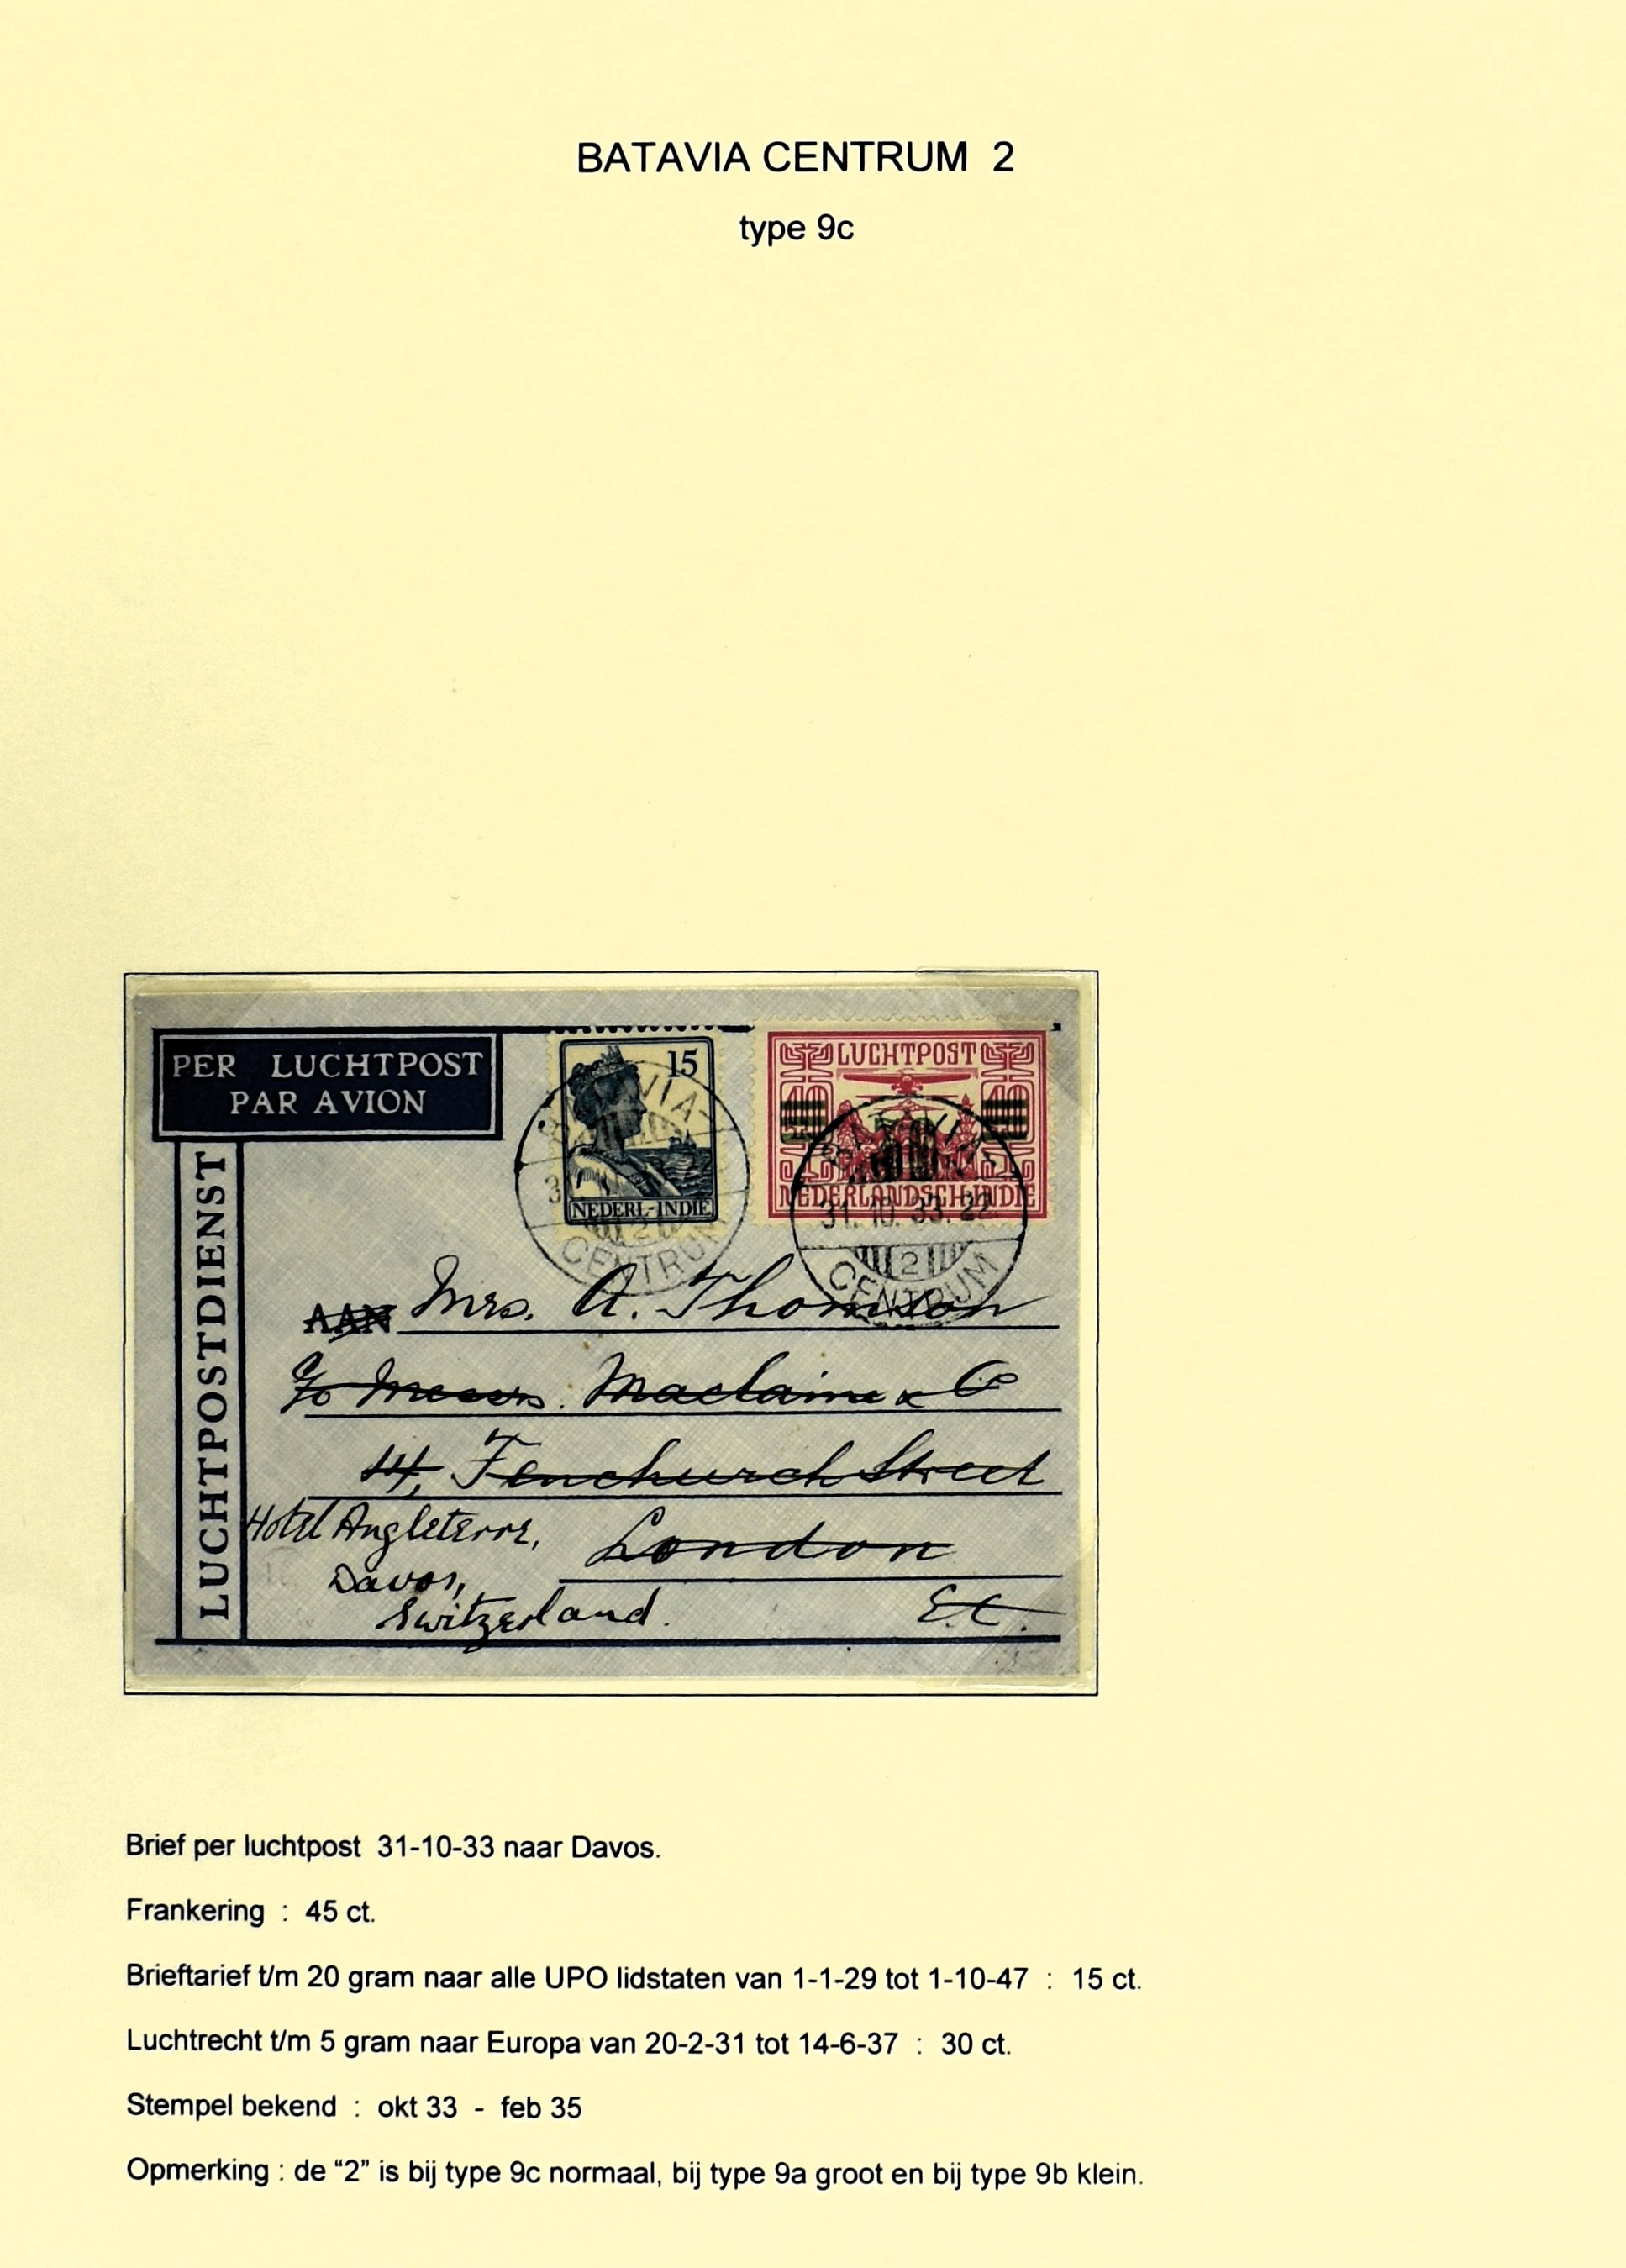 BATAVIA CENTRUM 2
type 9c
PER LUCHTPOST
PAR AVION
LUCHTPOSTDIENST
15
NEDERL-INDIE
BATAVIA-
CENTRUM
2
LUCHTPOST
40 40
NEDERLANDSCH-INDIE
BATAVIA-
31.10.33.22
2
CENTRUM
AAN Mrs. A. Thomson
c/o Messrs. Maclaine & Co
14, Fenchurch Street
London
E.C.
Hotel Angleterre,
Davos,
Switzerland.
Brief per luchtpost 31-10-33 naar Davos.
Frankering : 45 ct.
Brieftarief t/m 20 gram naar alle UPO lidstaten van 1-1-29 tot 1-10-47 : 15 ct.
Luchtrecht t/m 5 gram naar Europa van 20-2-31 tot 14-6-37 : 30 ct.
Stempel bekend : okt 33 - feb 35
Opmerking : de “2” is bij type 9c normaal, bij type 9a groot en bij type 9b klein.